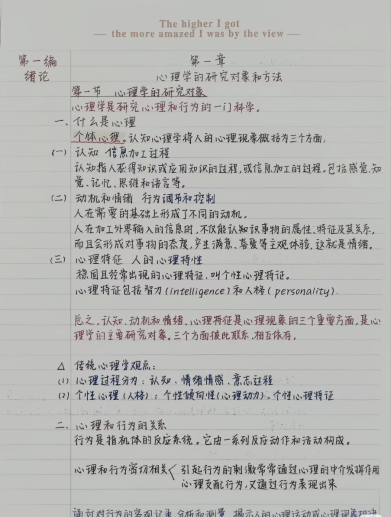 The higher I got
— the more amazed I was by the view —
第一编 第一章
绪论 心理学的研究对象和方法
第一节 心理学的研究对象
心理学是研究心理和行为的一门科学。
一、什么是心理
个体心理。认知心理学将人的心理现象概括为三个方面,
(一) 认知 信息加工过程
认知指人获得知识或应用知识的过程,或信息加工的过程。包括感觉、知
觉、记忆、思维和语言等。
(二) 动机和情绪 行为调节和控制
人在需要的基础上形成了不同的动机。
人在加工外界输入的信息时,不仅能认知识事物的属性、特征及其关系,
而且会形成对事物的态度,产生满意、等主观体验,这就是情绪。
(三) 心理特征 人的心理特性
稳固且经常出现的心理特征,叫个性心理特征。
心理特征包括智力(intelligence)和人格(personality).
总之,认知、动机和情绪、心理特征是心理现象的三个重要方面,是心
理学的主要研究对象。三个方面彼此联系,相互依存。
△ 传统心理学观点:
(1) 心理过程分为:认知、情绪情感、意志过程
(2) 个性心理(人格):个性倾向性(心理动力)、个性心理特征
二、心理和行为的关系
行为是指机体的反应系统。它由一系列反应动作和活动构成。
心理和行为密切相关< 引起行为的刺激常常通过心理的中介发挥作用
心理支配行为,又通过行为表现出来
通过对行为的客观记录、分析和测量,揭示人的心理活动